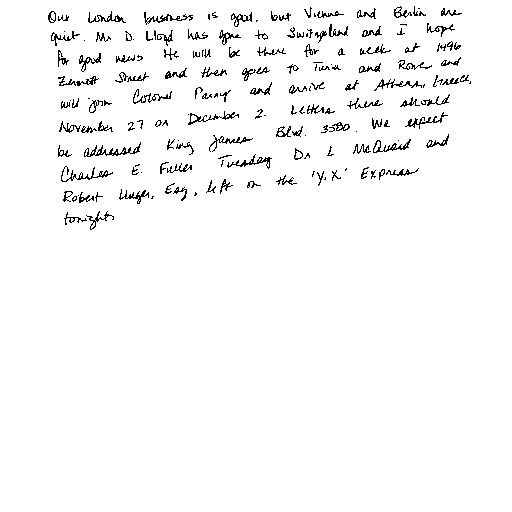 Our London business is good, but Vienna and Berlin are
quiet. Mr. D. Lloyd has gone to Switzerland and I hope
for good news He will be there for a week at 1496
Zermott Street and then goes to Turin and Rome and
will join Colonel Parry and arrive at Athens, Greece,
November 27 or December 2. Letters there should
be addressed King James Blvd. 3580. We expect
Charles E. Fuller Tuesday Dr L McQuaid and
Robert Unger, Esq., left on the 'Y.X' Express
tonight.